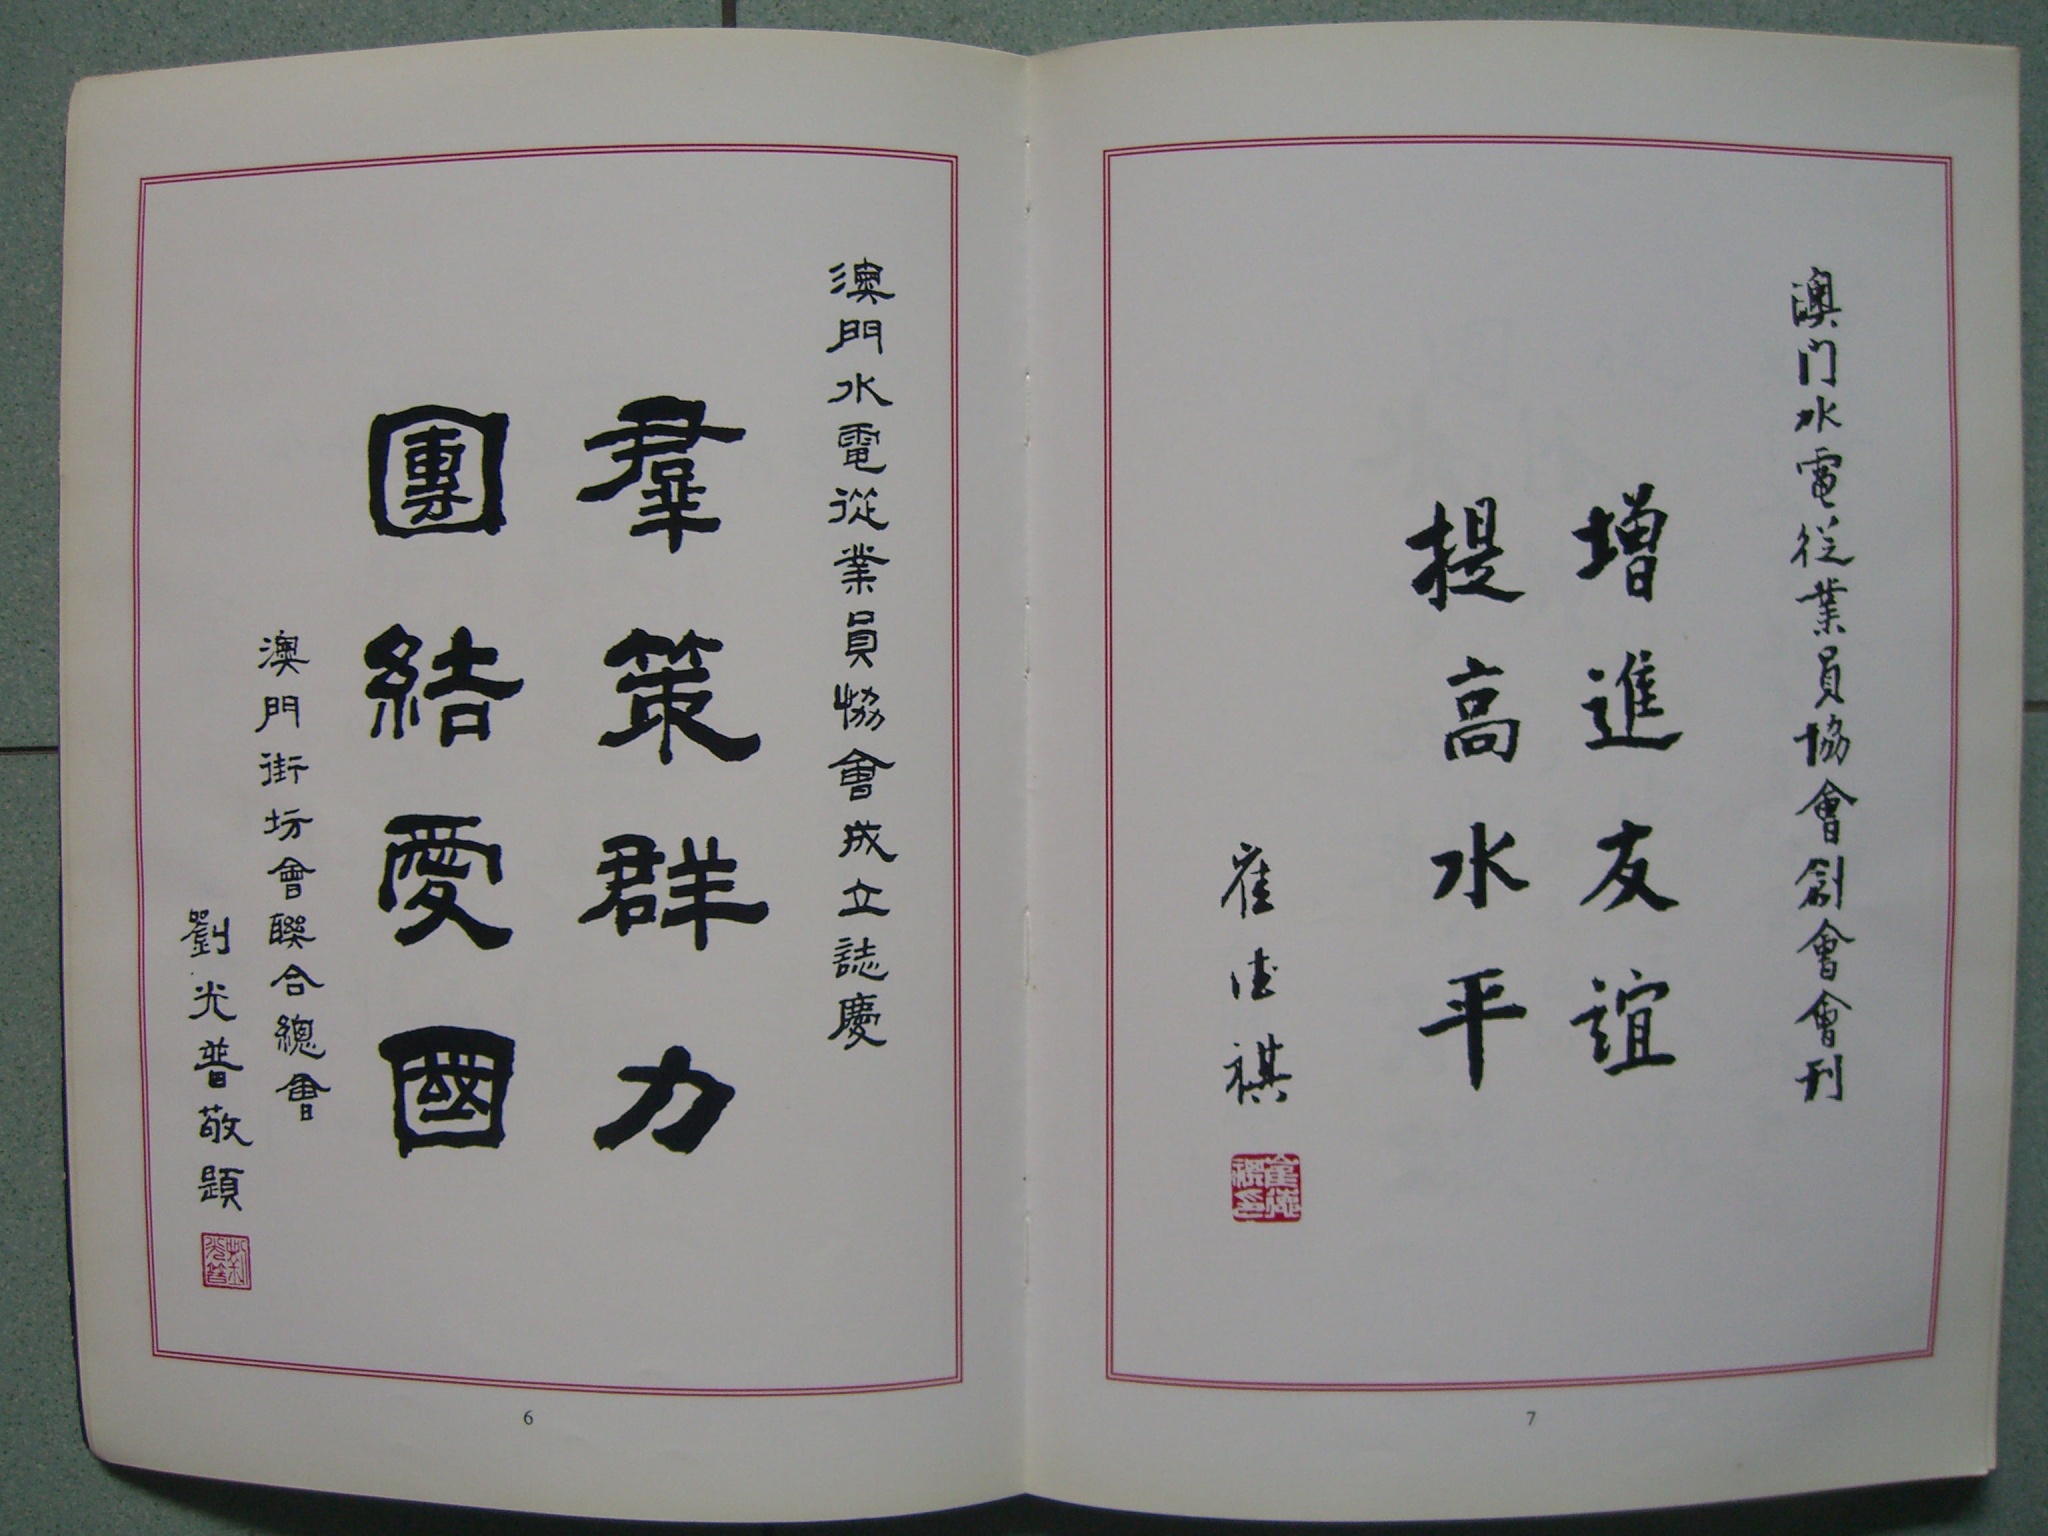 澳門水電從業員協會成立誌慶
羣策群力
團結愛國
澳門街坊會聯合總會
劉光普敬題
劉光普
6
澳门水電從業員協會創會會刊
增進友誼
提高水平
崔德祺
崔德祺印
7